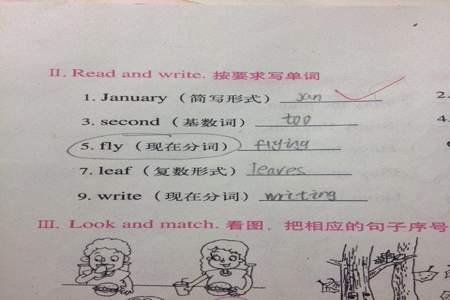 II. Read and write. 按要求写单词
1. January (简写形式) Jan
2.
3. second (基数词) too
4.
5. fly (现在分词) flying
7. leaf (复数形式) leaves
9. write (现在分词) writing
III. Look and match. 看图,把相应的句子序号